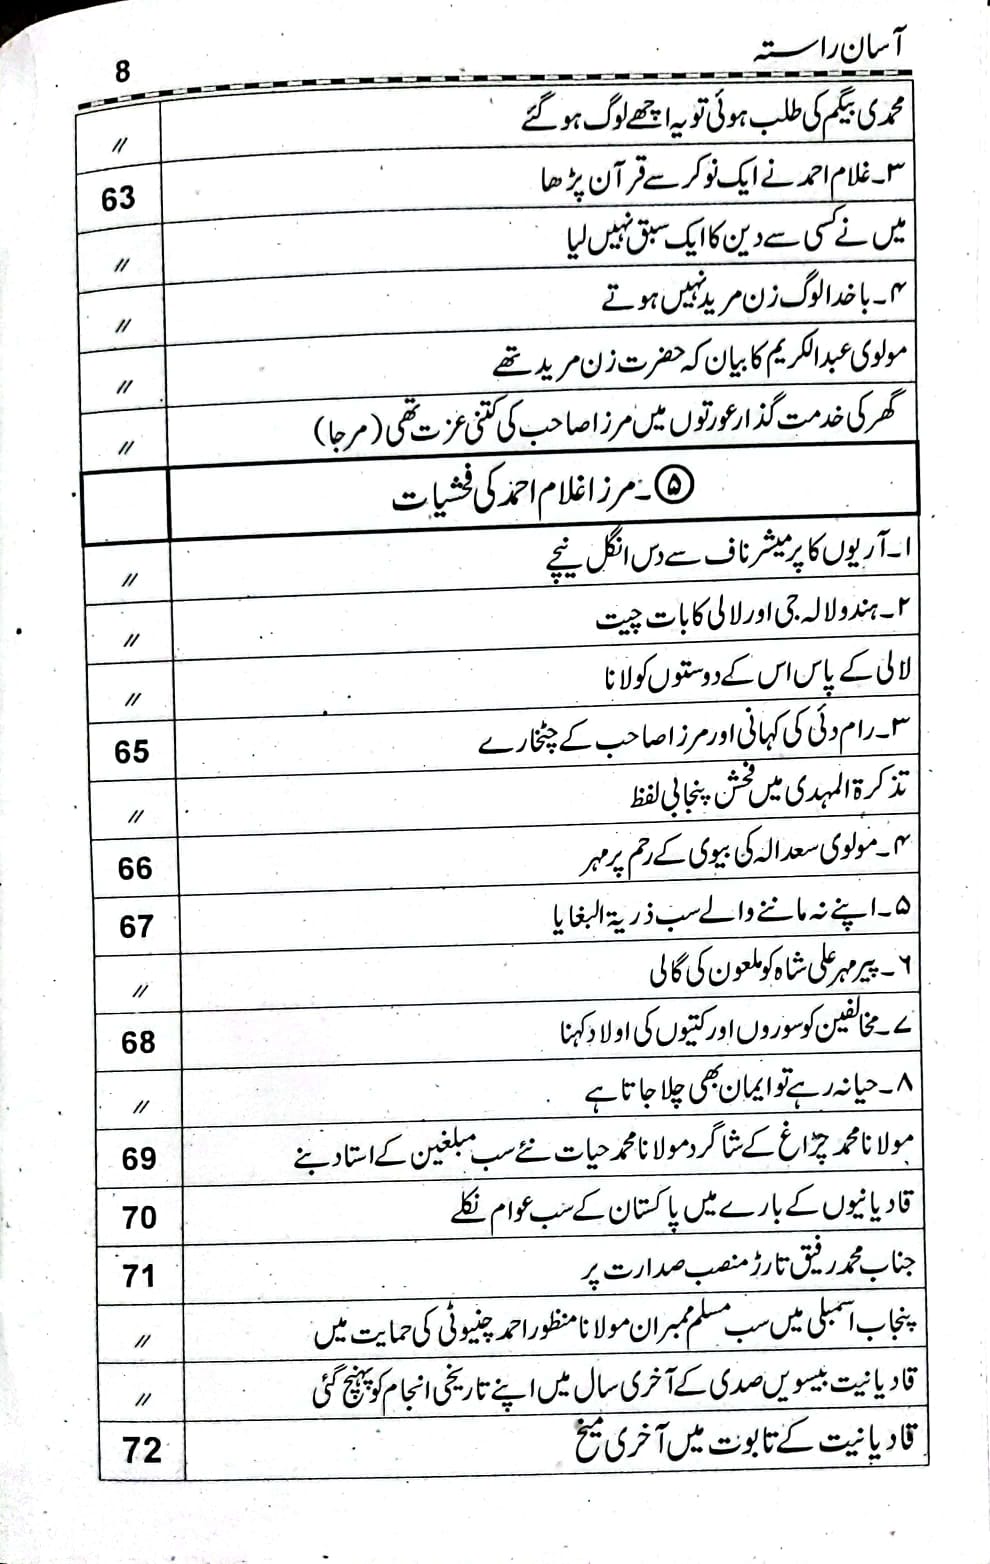 آسان راستہ
8
محمدی بیگم کی طلب ہوئی تو یہ اچھے لوگ ہو گئے
〃
۳۔غلام احمد نے ایک نوکر سے قرآن پڑھا
63
میں نے کسی سے دین کا ایک سبق نہیں لیا
〃
۴۔باخدا لوگ زن مرید نہیں ہوتے
〃
مولوی عبدالکریم کا بیان کہ حضرت زن مرید تھے
〃
گھر کی خدمت گذار عورتوں میں مرزا صاحب کی کتنی عزت تھی (مرجا)
〃
۵۔مرزا غلام احمد کی فحشیات
۱۔آریوں کا پرمیشر ناف سے دس انگل نیچے
〃
۲۔ہندو لالہ جی اور لالی کا بات چیت
〃
لالی کے پاس اس کے دوستوں کو لانا
〃
۳۔رام دئی کی کہانی اور مرزا صاحب کے چٹخارے
65
تذکرۃ المہدی میں فحش پنجابی لفظ
〃
۴۔مولوی سعد الہ کی بیوی کے رحم پر مہر
66
۵۔اپنے نہ ماننے والے سب ذریۃ البغایا
67
۶۔پیر مہر علی شاہ کو ملعون کی گالی
〃
۷۔مخالفین کو سوروں اور کتیوں کی اولاد کہنا
68
۸۔حیا نہ رہے تو ایمان بھی چلا جاتا ہے
〃
مولانا محمد چراغ کے شاگرد مولانا محمد حیات نئے سب مبلغین کے استاد بنے
69
قادیانیوں کے بارے میں پاکستان کے سب عوام نکلے
70
جناب محمد رفیق تارڑ منصب صدارت پر
71
پنجاب اسمبلی میں سب مسلم ممبران مولانا منظور احمد چنیوٹی کی حمایت میں
〃
قادیانیت بیسویں صدی کے آخری سال میں اپنے تاریخی انجام کو پہنچ گئی
〃
قادیانیت کے تابوت میں آخری میخ
72